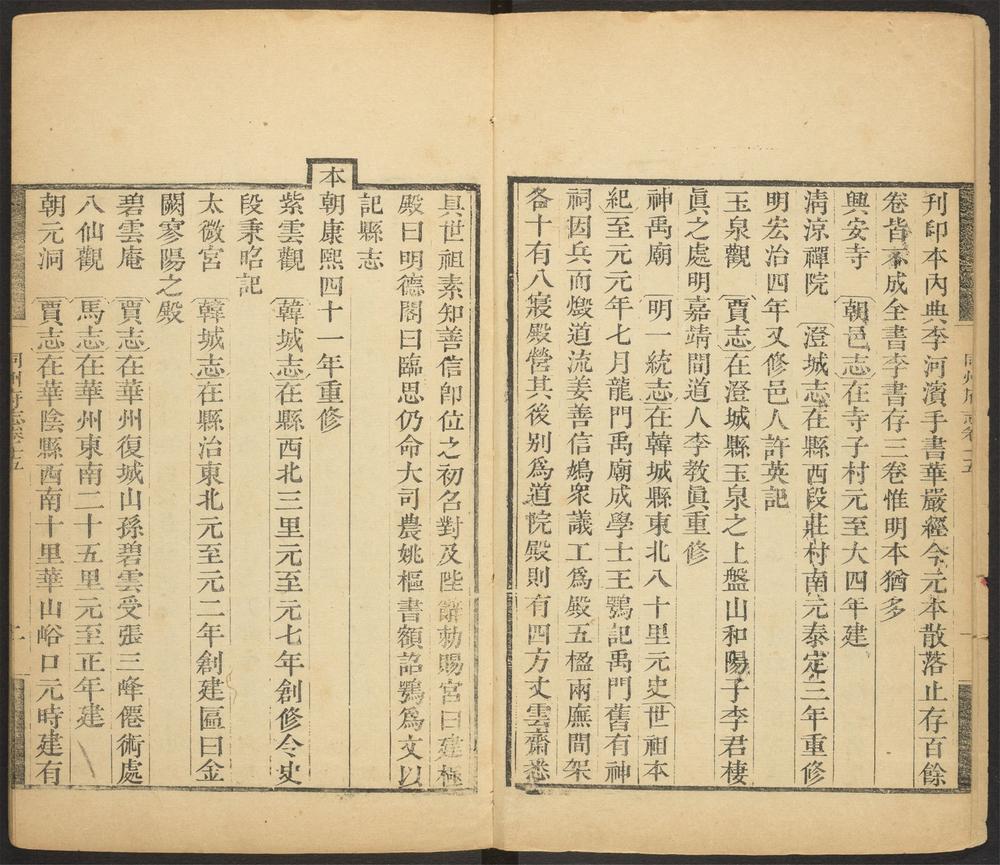 刊印本內典李河濱手書華嚴經今元本散落止存百餘
卷皆不成全書李書存三卷惟明本猶多
興安寺 朝邑志在寺子村元至大四年建
清涼禪院 澄城志在縣西段莊村南元泰定三年重修
明宏治四年又修邑人許英記
玉泉觀 賈志在澄城縣玉泉之上盤山和陽子李君棲
眞之處明嘉靖間道人李教眞重修
神禹廟 明一統志在韓城縣東北八十里元史世祖本
紀至元元年七月龍門禹廟成學士王鶚記禹門舊有神
祠因兵而燬道流姜善信鳩衆議工爲殿五楹兩廡間架
各十有八寢殿營其後別爲道院殿則有四方丈雲齋悉
具世祖素知善信卽位之初召對及陛辭勅賜宮曰建極
殿曰明德閣曰臨思仍命大司農姚樞書額詔鶚爲文以
記縣志
本朝康熙四十一年重修
紫雲觀 韓城志在縣西北三里元至元七年創修令史
段秉昭記
太微宮 韓城志在縣治東北元至元二年創建區曰金
闕寥陽之殿
碧雲庵 賈志在華州復城山孫碧雲受張三峰僊術處
八仙觀 馬志在華州東南二十五里元至正年建
朝元洞 賈志在華陰縣西南十里華山峪口元時建有